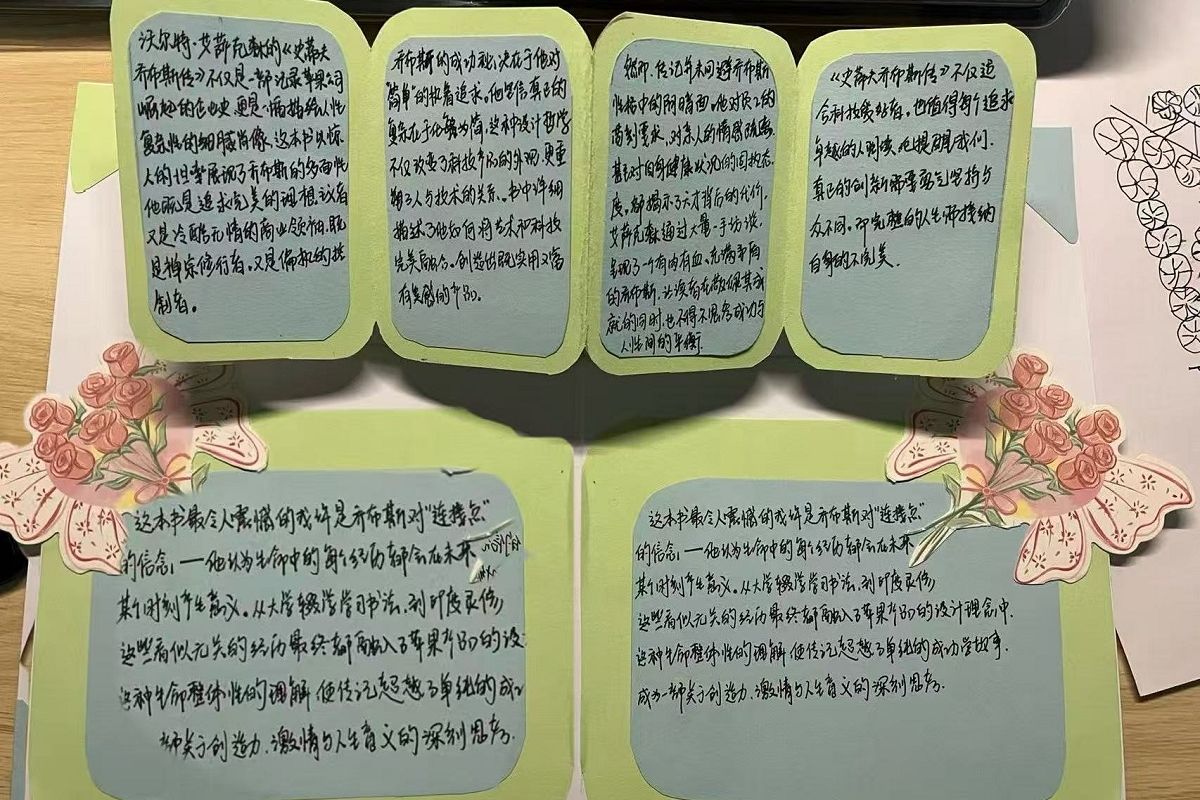 沃尔特·艾萨克森的《史蒂夫
乔布斯传》不仅是一部记录苹果公司
崛起的企业史,更是一幅描绘人性
复杂性的细腻肖像。这本书以惊
人的坦率展现了乔布斯的多面性
他既是追求完美的理想主义者
又是冷酷无情的商业领袖,既
是禅宗修行者,又是偏执的控
制者。
乔布斯的成功秘诀在于他对
"简单"的执着追求。他坚信真正的
复杂在于化繁为简,这种设计哲学
不仅改变了科技产品的外观,更重
塑了人与技术的关系。书中详细
描述了他如何将艺术和科技
完美融合。创造出既实用又富
有美感的产品。
然而,传记并未回避乔布斯
性格中的阴暗面。他对员工的
苛刻要求,对亲人的情感疏离
甚至对自身健康状况的固执态
度,都揭示了天才背后的代价。
艾萨克森通过大量一手访谈,
呈现了一个有肉有血、充满矛盾
的乔布斯,让读者在敬佩其成
就的同时,也不得不思考成功与
人性间的平衡
《史蒂夫乔布斯传》不仅适
合科技爱好者,也值得每个追求
卓越的人阅读,它提醒我们。
真正的创新需要勇气坚持与
众不同。而完整的人生需接纳
自身的不完美。
这本书最令人震撼的或许是乔布斯对"连接点"
的信念,——他认为生命中的每个经历都会在未来
某个时刻产生意义。从大学辍学学习书法,到印度灵修,
这些看似无关的经历最终都融入了苹果产品的设
这种生命整体性的理解,使传记超越了单纯的成功
一部关于创造力、激情与人生意义的深刻思考。
这本书最令人震撼的或许是乔布斯对"连接点"
的信念,——他认为生命中的每个经历都会在未来
某个时刻产生意义。从大学辍学学习书法、到印度灵修,
这些看似无关的经历最终都融入了苹果产品的设计理念中.
这种生命整体性的理解,使传记超越了单纯的成功学故事.
成为一部关于创造力、激情与人生意义的深刻思考.